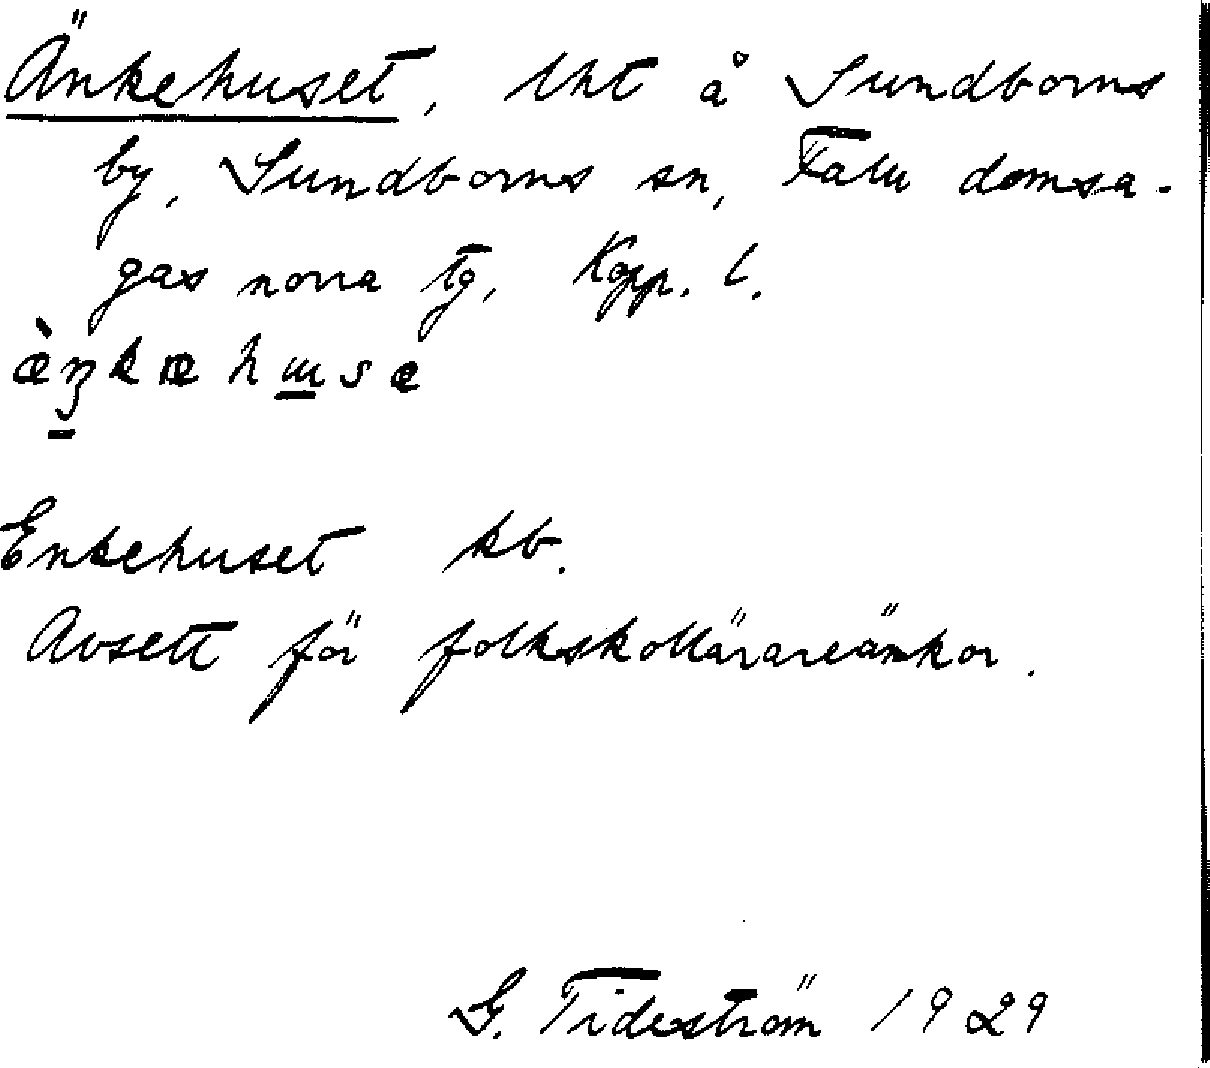 Änkehuset, lht å Sundborns
by, Sundborns sn, Falu domsa-
gas norra tg, Kopp. l.
Enkehuset kb.
Avsett för folkskollärareänkor.
G. Tideström 1929